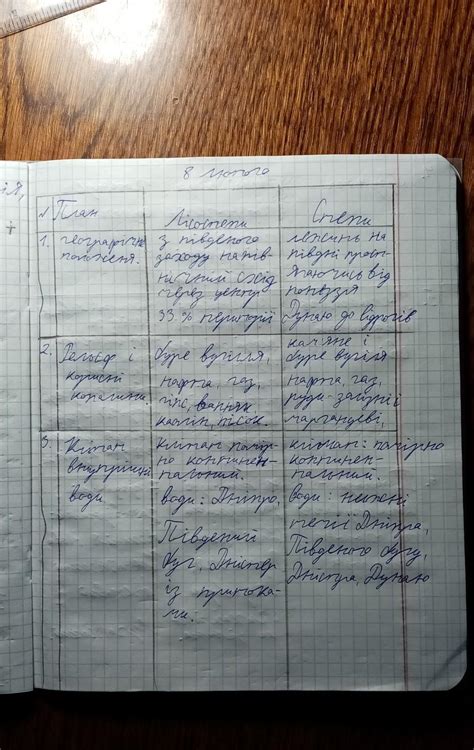 8 лютого
№ План
Лісостепи
Степи
1. географічне
положеня.
з південого
заходу на пів-
нічний схід
через центр
33 % території
лежить на
півдні прост-
ягаючись від
пониззя
Дунаю до відрогів
2. Рельєф і
корисні
копалини.
буре вугілля,
нафта, газ,
гіпс, вапняк
каолін, пісок.
кам'яне і
буре вугіля
нафта, газ,
руди-залізні і
марганцеві,
3. Клімат
внутрішні
води
клімат помір-
но континен-
тальний.
води: Дніпро,
Південий
Буг, Дністер
із притока-
ми.
клімат: помірно
континен-
тальний.
води: нижні
течії Дніпра,
Південого Бугу,
Дністра, Дунаю